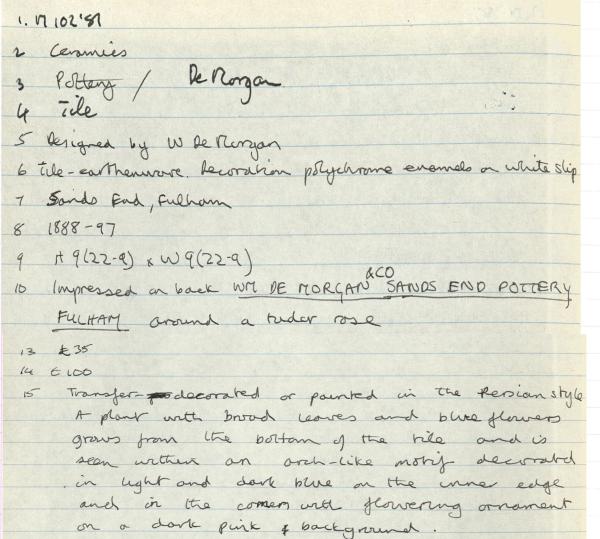 1. M 102'81
2 Ceramics
3 Pottery / De Morgan
4 Tile
5 Designed by W De Morgan
6 Tile-earthenware. Decoration polychrome enamels on white slip
7 Sands End, Fulham
8 1888-97
9 H 9(22-9) x W 9(22-9)
10 Impressed on back WM DE MORGAN &CO SANDS END POTTERY
FULHAM around a tudor rose
13 £35
14 £100
15 Transfer-decorated or painted in the Persian style
A plant with broad leaves and blue flowers
grows from the bottom of the tile and is
seen within an arch-like motif decorated
in light and dark blue on the inner edge
and in the corners with flowering ornament
on a dark pink background.